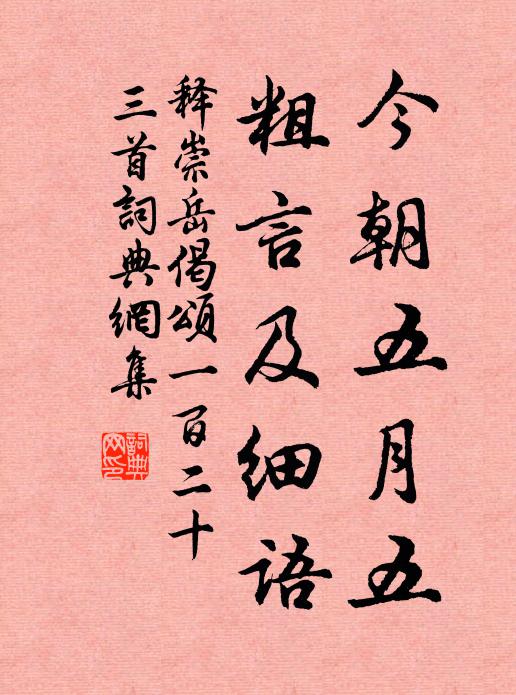 今朝五月五
粗言及细語
释崇岳偈頌一百二十
三首詞典網集
詞典网印